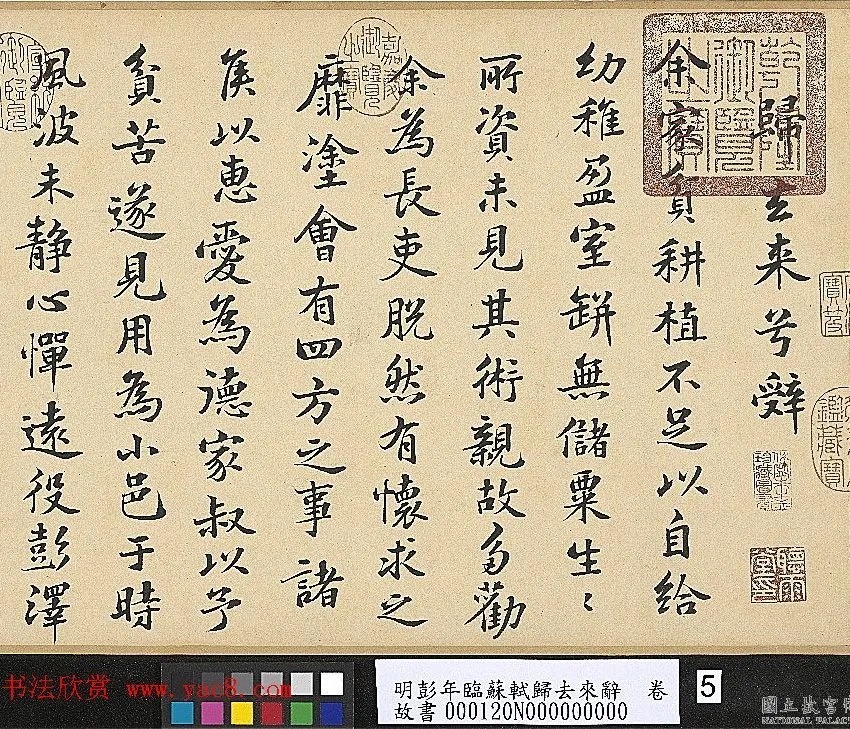 歸去来兮辤
余家貧耕植不足以自給
幼稚盈室缾無儲粟生〻
所資未見其術親故多勸
余為長吏脱然有懷求之
靡塗會有四方之事諸
侯以惠愛為德家叔以予
貧苦遂見用為小邑于時
風波未静心憚遠役彭澤
乾隆御覽之寶
嘉慶御覽之寶
鑑藏寶
书法欣赏 www.yac8.com
明彭年臨蘇軾歸去來辭 卷
故書 000120N000000000
5
國立故宮博
NATIONAL PALAC